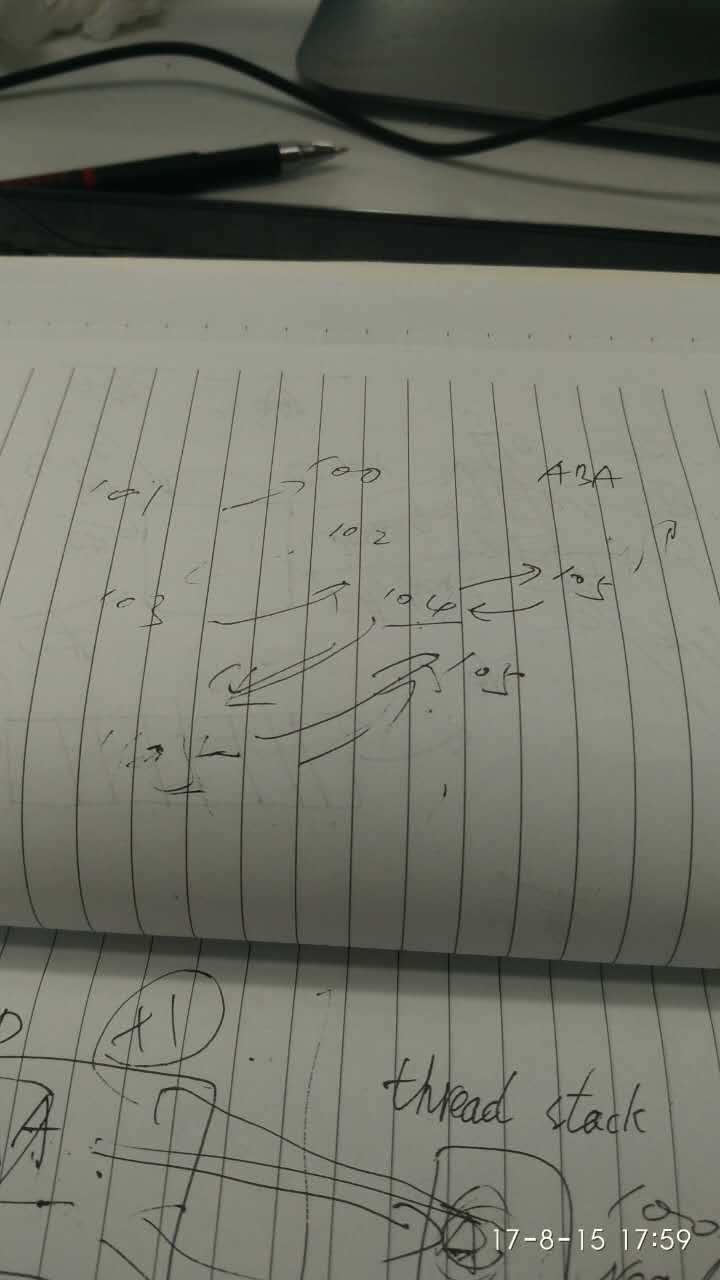 101 100 ABA
102
103 104 105
105
+1
A
thread stack
17-8-15 17:59